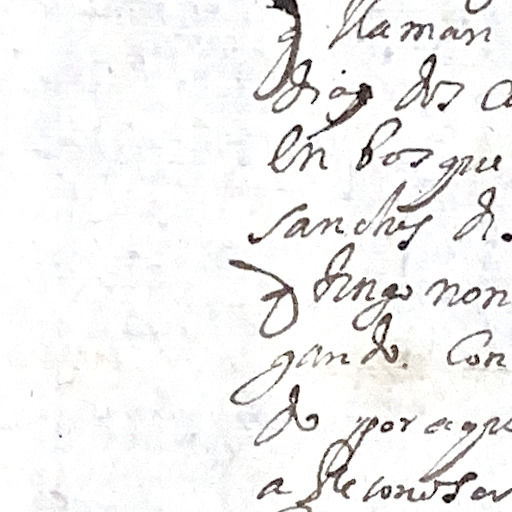 q llaman
dias dos
en bosque
sanches de
tengo non
gando. Con
do por aque
a Reconoser